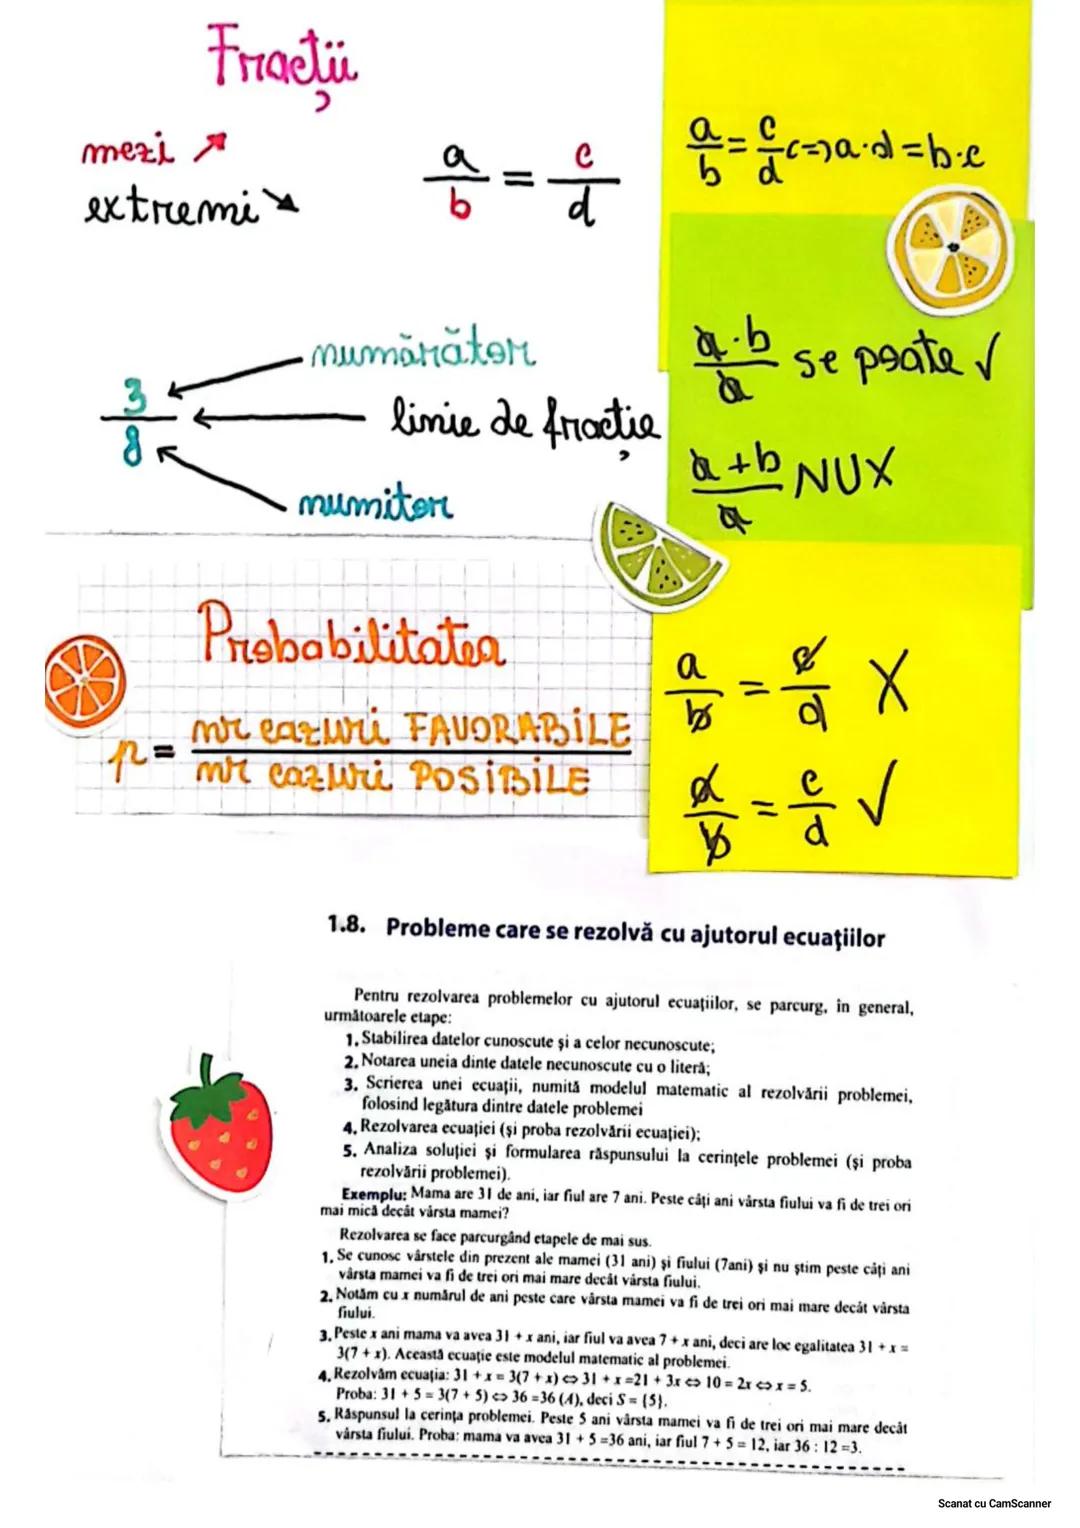 Fracții
mezi ↗
extremi ↘
a/b = c/d
a/b = c/d <=> a·d = b·c
a·b/a se poate √
a+b/a NU X
numărător
3/8
linie de fracție
numitor
Probabilitatea
p = nr cazuri FAVORABILE / nr cazuri POSIBILE
a/b = c/d X
a/b = c/d √
1.8. Probleme care se rezolvă cu ajutorul ecuațiilor
Pentru rezolvarea problemelor cu ajutorul ecuațiilor, se parcurg, în general,
următoarele etape:
1. Stabilirea datelor cunoscute și a celor necunoscute;
2. Notarea uneia dinte datele necunoscute cu o literă;
3. Scrierea unei ecuații, numită modelul matematic al rezolvării problemei,
folosind legătura dintre datele problemei
4. Rezolvarea ecuației (și proba rezolvării ecuației);
5. Analiza soluției și formularea răspunsului la cerințele problemei (și proba
rezolvării problemei).
Exemplu: Mama are 31 de ani, iar fiul are 7 ani. Peste câți ani vârsta fiului va fi de trei ori
mai mică decât vârsta mamei?
Rezolvarea se face parcurgând etapele de mai sus.
1. Se cunosc vârstele din prezent ale mamei (31 ani) și fiului (7ani) și nu știm peste câți ani
vârsta mamei va fi de trei ori mai mare decât vârsta fiului.
2. Notăm cu x numărul de ani peste care vârsta mamei va fi de trei ori mai mare decât vârsta
fiului.
3. Peste x ani mama va avea 31 + x ani, iar fiul va avea 7 + x ani, deci are loc egalitatea 31 + x =
3(7 + x). Această ecuație este modelul matematic al problemei.
4. Rezolvăm ecuația: 31 + x = 3(7 + x) ⇔ 31 + x =21 + 3x ⇔ 10 = 2x ⇔ x = 5.
Proba: 31 + 5 = 3(7 + 5) ⇔ 36 =36 (A), deci S = {5}.
5. Răspunsul la cerința problemei. Peste 5 ani vârsta mamei va fi de trei ori mai mare decât
vârsta fiului. Proba: mama va avea 31 + 5 =36 ani, iar fiul 7 + 5 = 12, iar 36 : 12 =3.
Scanat cu CamScanner